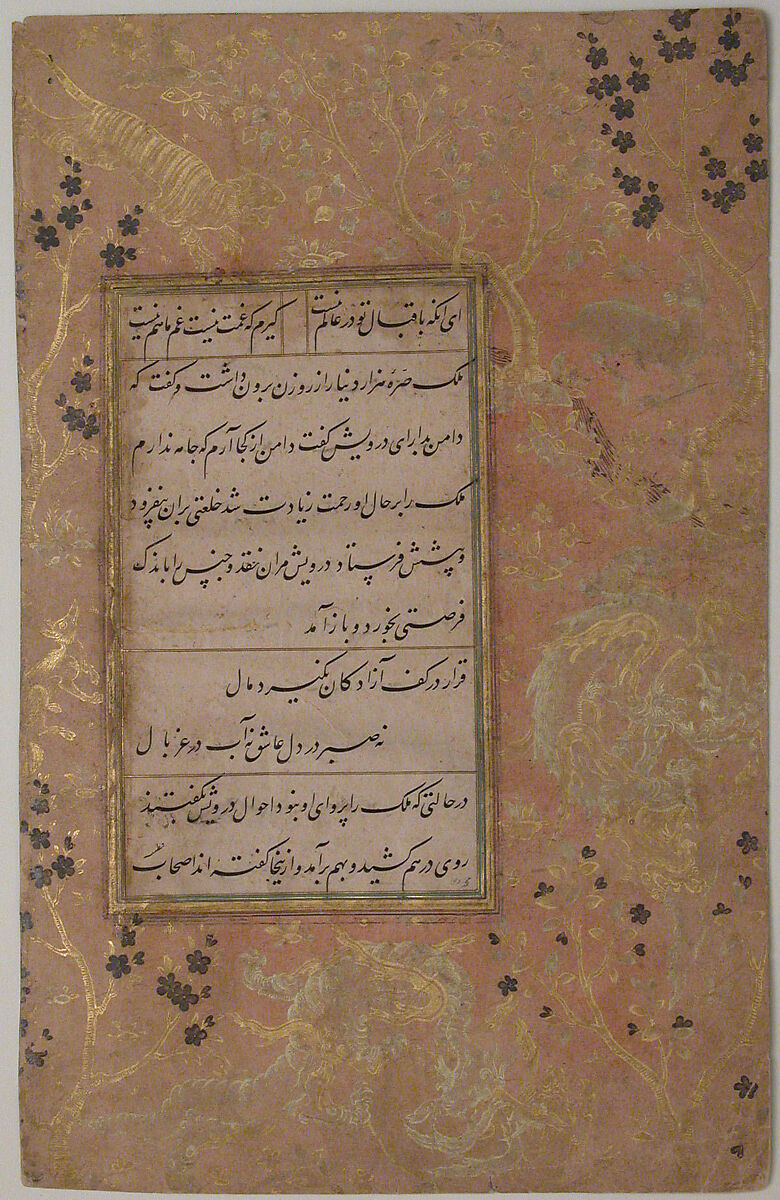 ای انکه باقبال تو در عالم نیست
گیرم که غمت نیست غم ما هم نیست
ملک صرهٔ هزار دنیار از روزن برون داشت و کفت که
دامن بدار ای درویش کفت دامن از کجا آرم که جامه ندارم
ملک را بر حال او رحمت زیادت شد خلعتی بران بیفزود
و پیشش فرستاد درویش مران نقد و جنس را باندک
فرصتی بخورد و باز آمد
قرار در کف آزادکان نکیرد مال
نه صبر در دل عاشق نه آب در غربال
در حالتی که ملک را پروای او نبود احوال درویش بکفتند
روی درهم کشید و بهم برآمد و ازینجا کفته اند اصحاب